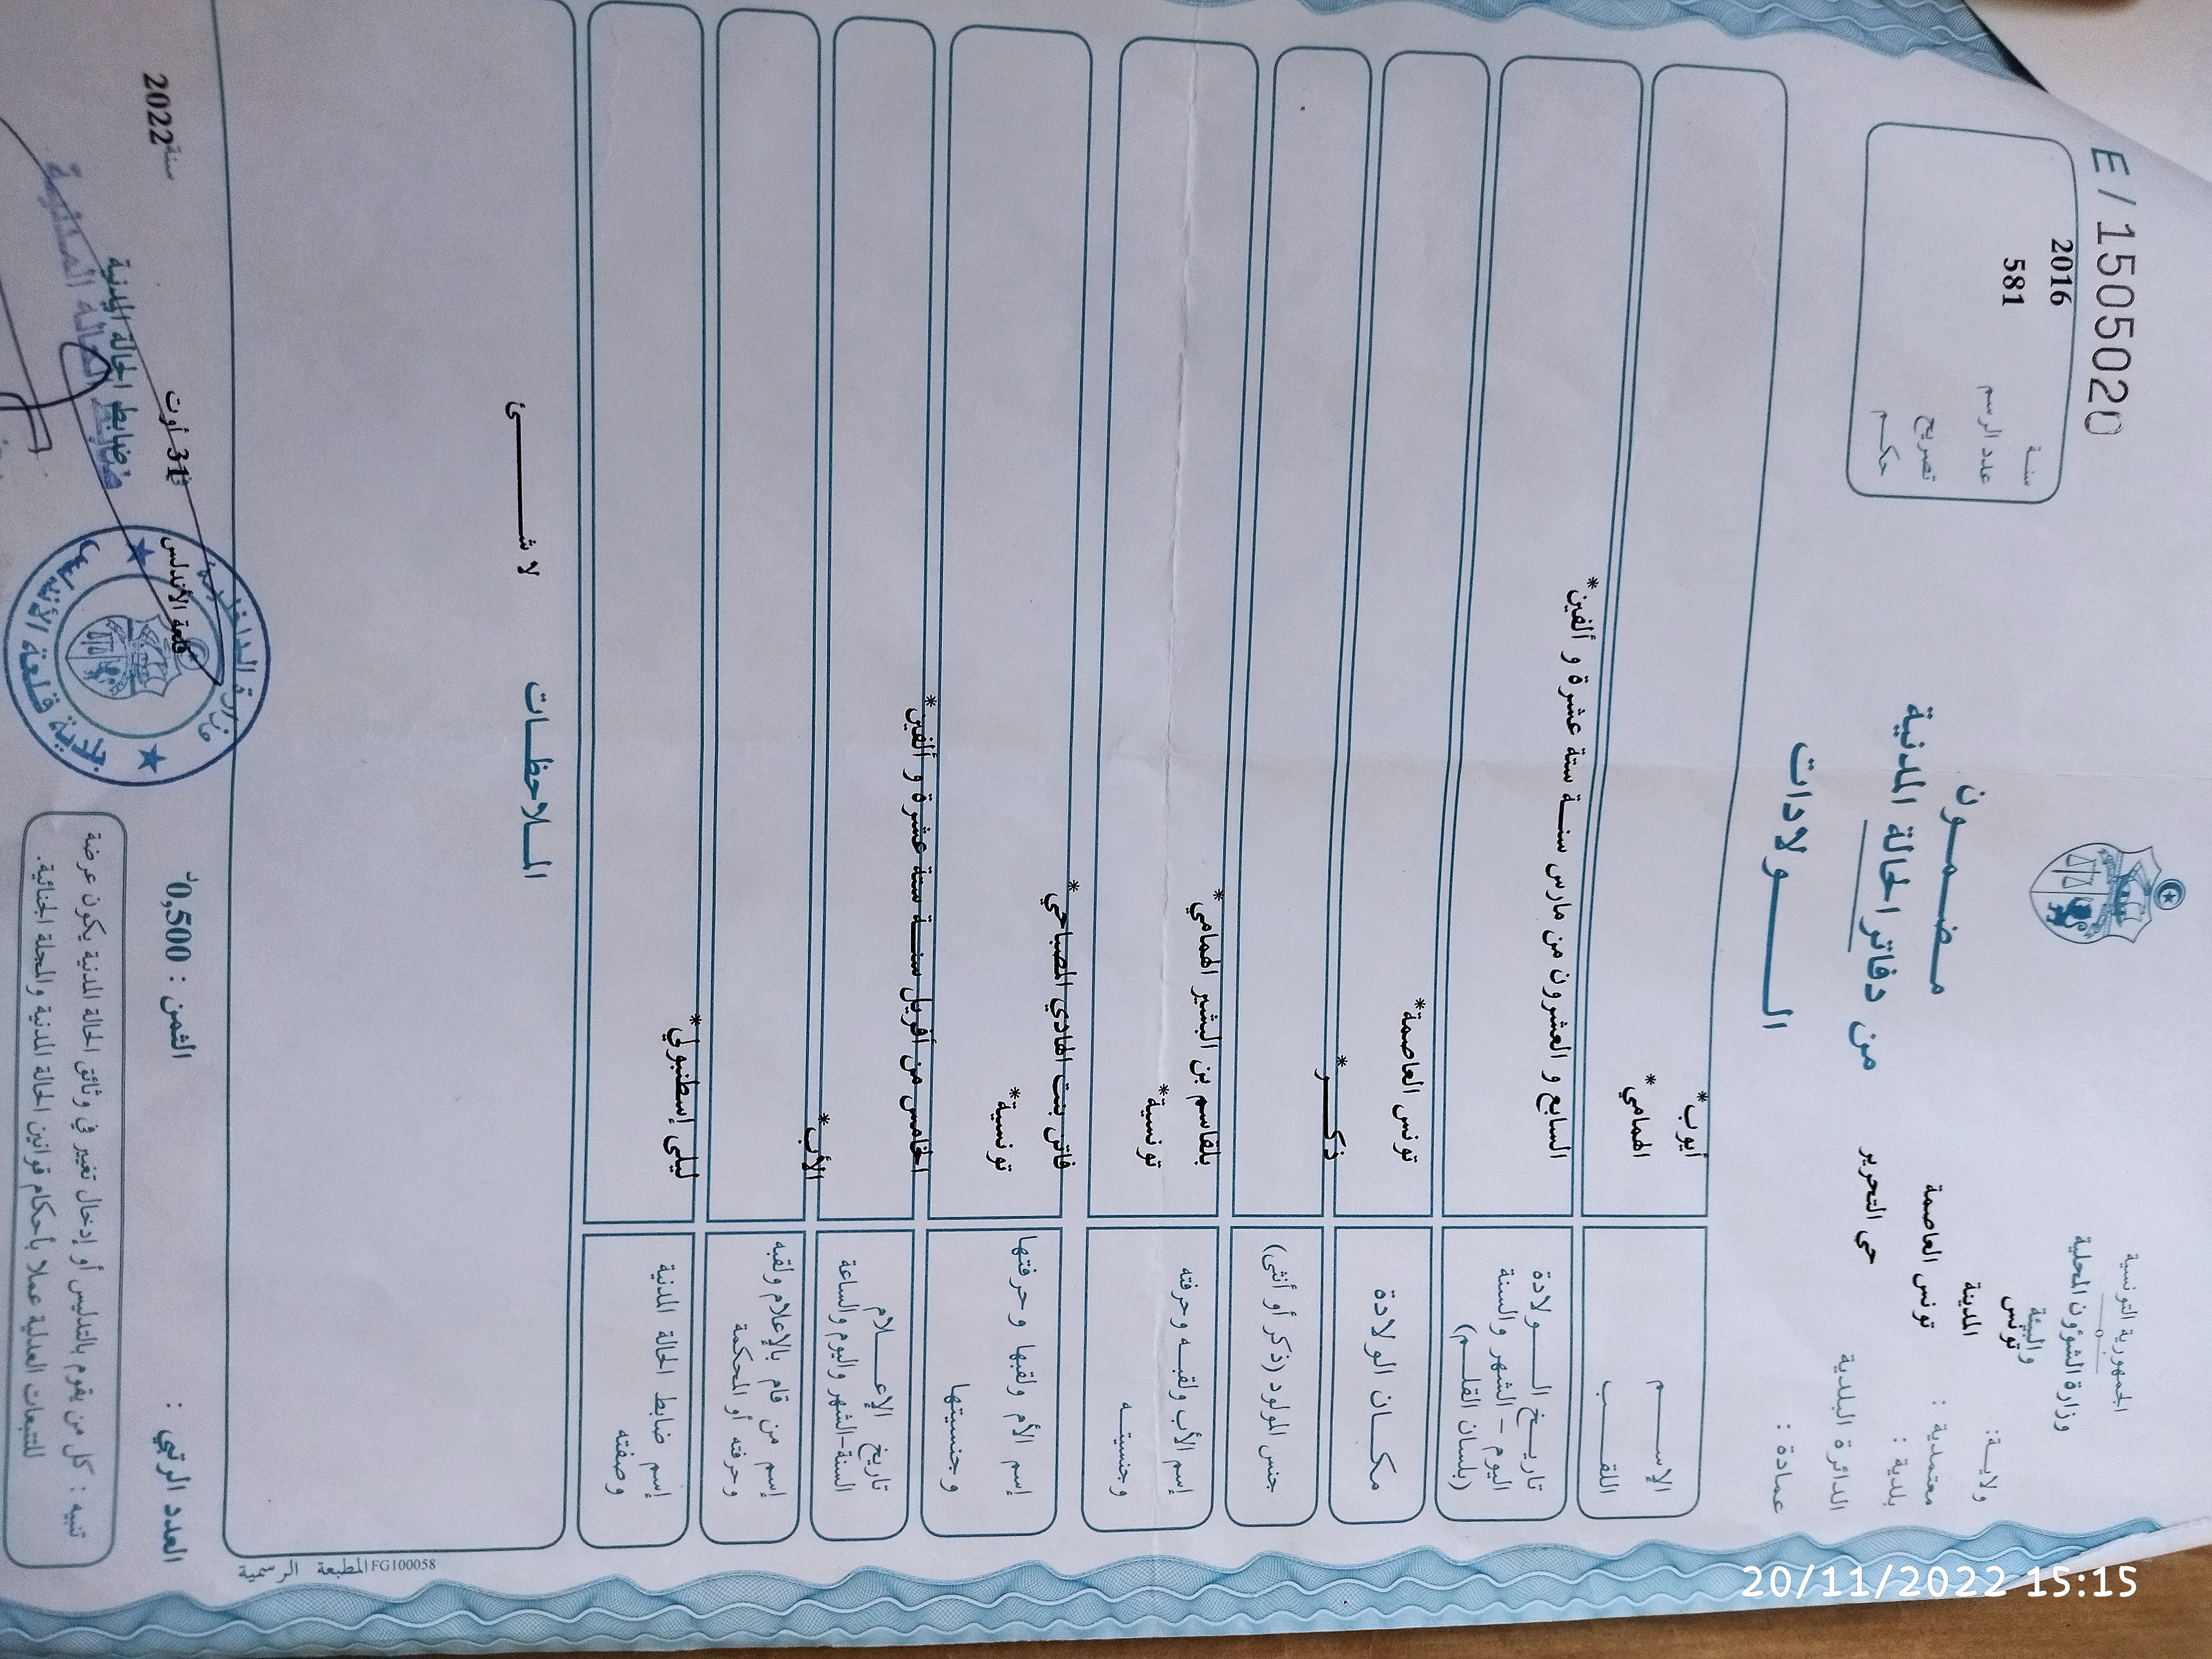 الجمهورية التونسية
وزارة الشؤون المحلية
والبيئة
ولايـة: تونس
معتمدية : المدينة
بلدية : تونس العاصمة
الدائرة البلدية حي التحرير
عمادة :
مـضـمـون
من دفاتر الحالة المدنية
الـــولادات
E/1505020
سنة 2016
عدد الرسم 581
تصريح
حكم
الإســـم أيوب*
اللقـــب الهمامي*
تاريـخ الــولادة
اليوم - الشهر والسنة
(بلسان القلـم)
السابع و العشرون من مارس سنـة ستة عشرة و ألفين*
مكـان الولادة تونس العاصمة*
جنس المولود (ذكر أو أنثى) ذكـــر*
إسم الأب ولقبـه وحرفته بلقاسم بن البشير الهمامي*
وجنسيتـه تونسية*
إسم الأم ولقبها وحرفتها فاتن بنت الهادي المصباحي*
وجنسيتها تونسية*
تاريخ الإعــلام
السنة-الشهر واليوم والساعة
الخامس من أفريل سنـة ستة عشرة و ألفين*
إسم من قام بالإعلام ولقبه
وحرفته أو المحكمة
الأب*
إسم ضابط الحالة المدنية
وصفته
ليلى إسطنبولي*
المـلاحظـات
لا شـــئ
المطبعة الرسمية FG100058
العدد الرتبي :
الثمن : 0,500د
قلعة الأندلس
31 أوت
سنة 2022
ضابط الحالة المدنية
ضابط الحالة المدنية
بلدية قلعة الأندلس
تنبيه : كل من يقوم بالتدليس أو إدخال تغيير في وثائق الحالة المدنية يكون عرضة
للتتبعات العدلية عملا بأحكام قوانين الحالة المدنية والمجلة الجنائية.
20/11/2022 15:15